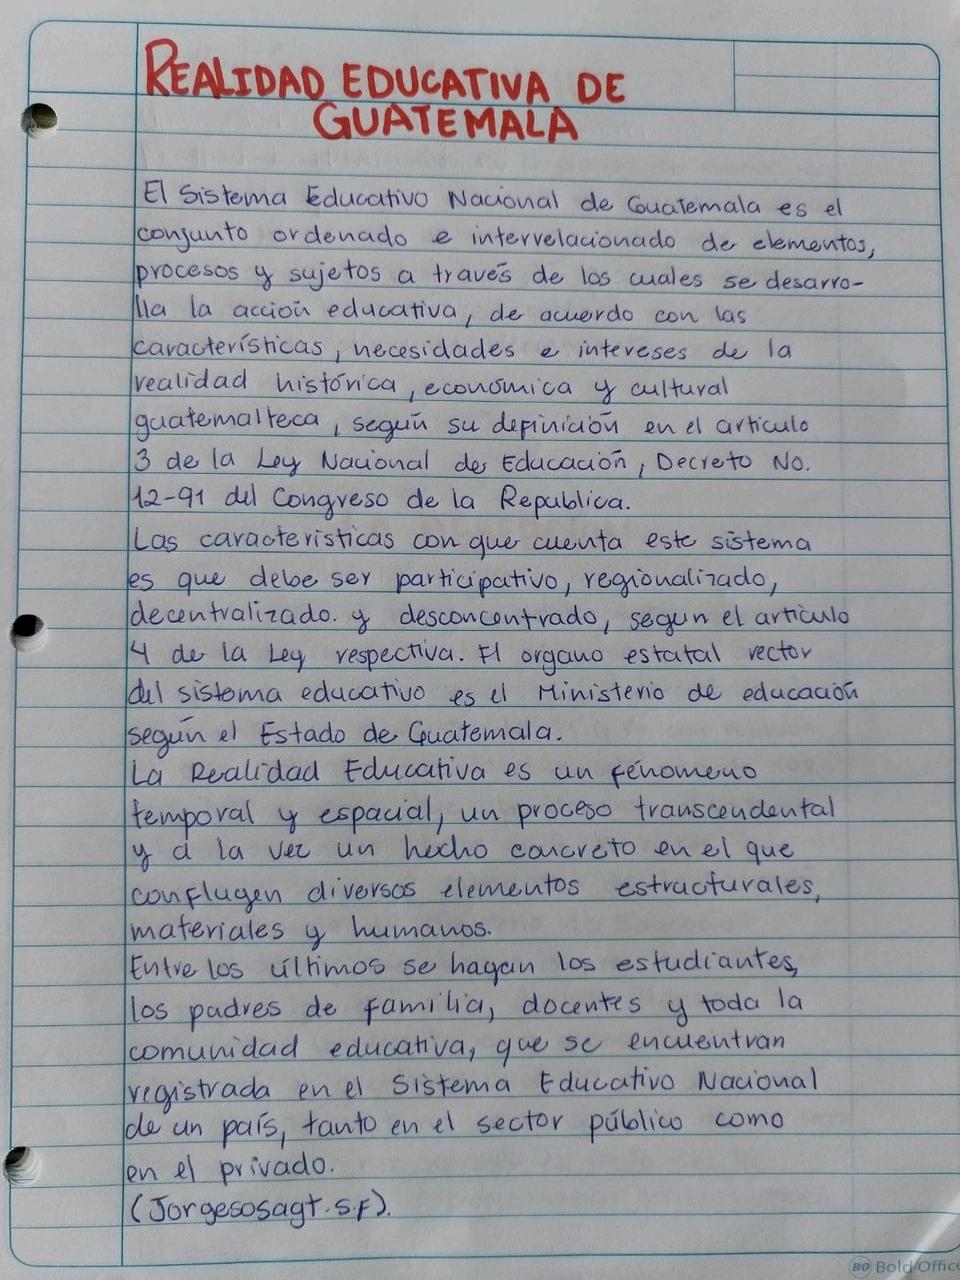 REALIDAD EDUCATIVA DE
GUATEMALA
El Sistema Educativo Nacional de Guatemala es el
conjunto ordenado e interrelacionado de elementos,
procesos y sujetos a través de los cuales se desarro-
lla la acción educativa, de acuerdo con las
características, necesidades e intereses de la
realidad histórica, económica y cultural
guatemalteca, según su definición en el articulo
3 de la Ley Nacional de Educación, Decreto No.
12-91 del Congreso de la Republica.
Las caracteristicas con que cuenta este sistema
es que debe ser participativo, regionalizado,
decentralizado. y desconcentrado, segun el articulo
4 de la Ley respectiva. El organo estatal rector
del sistema educativo es el Ministerio de educación
según el Estado de Guatemala.
La Realidad Educativa es un fénomeno
temporal y espacial, un proceso transcendental
y a la vez un hecho concreto en el que
confluyen diversos elementos estructurales,
materiales y humanos.
Entre los últimos se hagan los estudiantes,
los padres de familia, docentes y toda la
comunidad educativa, que se encuentran
registrada en el Sistema Educativo Nacional
de un país, tanto en el sector público como
en el privado.
(Jorgesosagt.s.f).
BO Bold Office